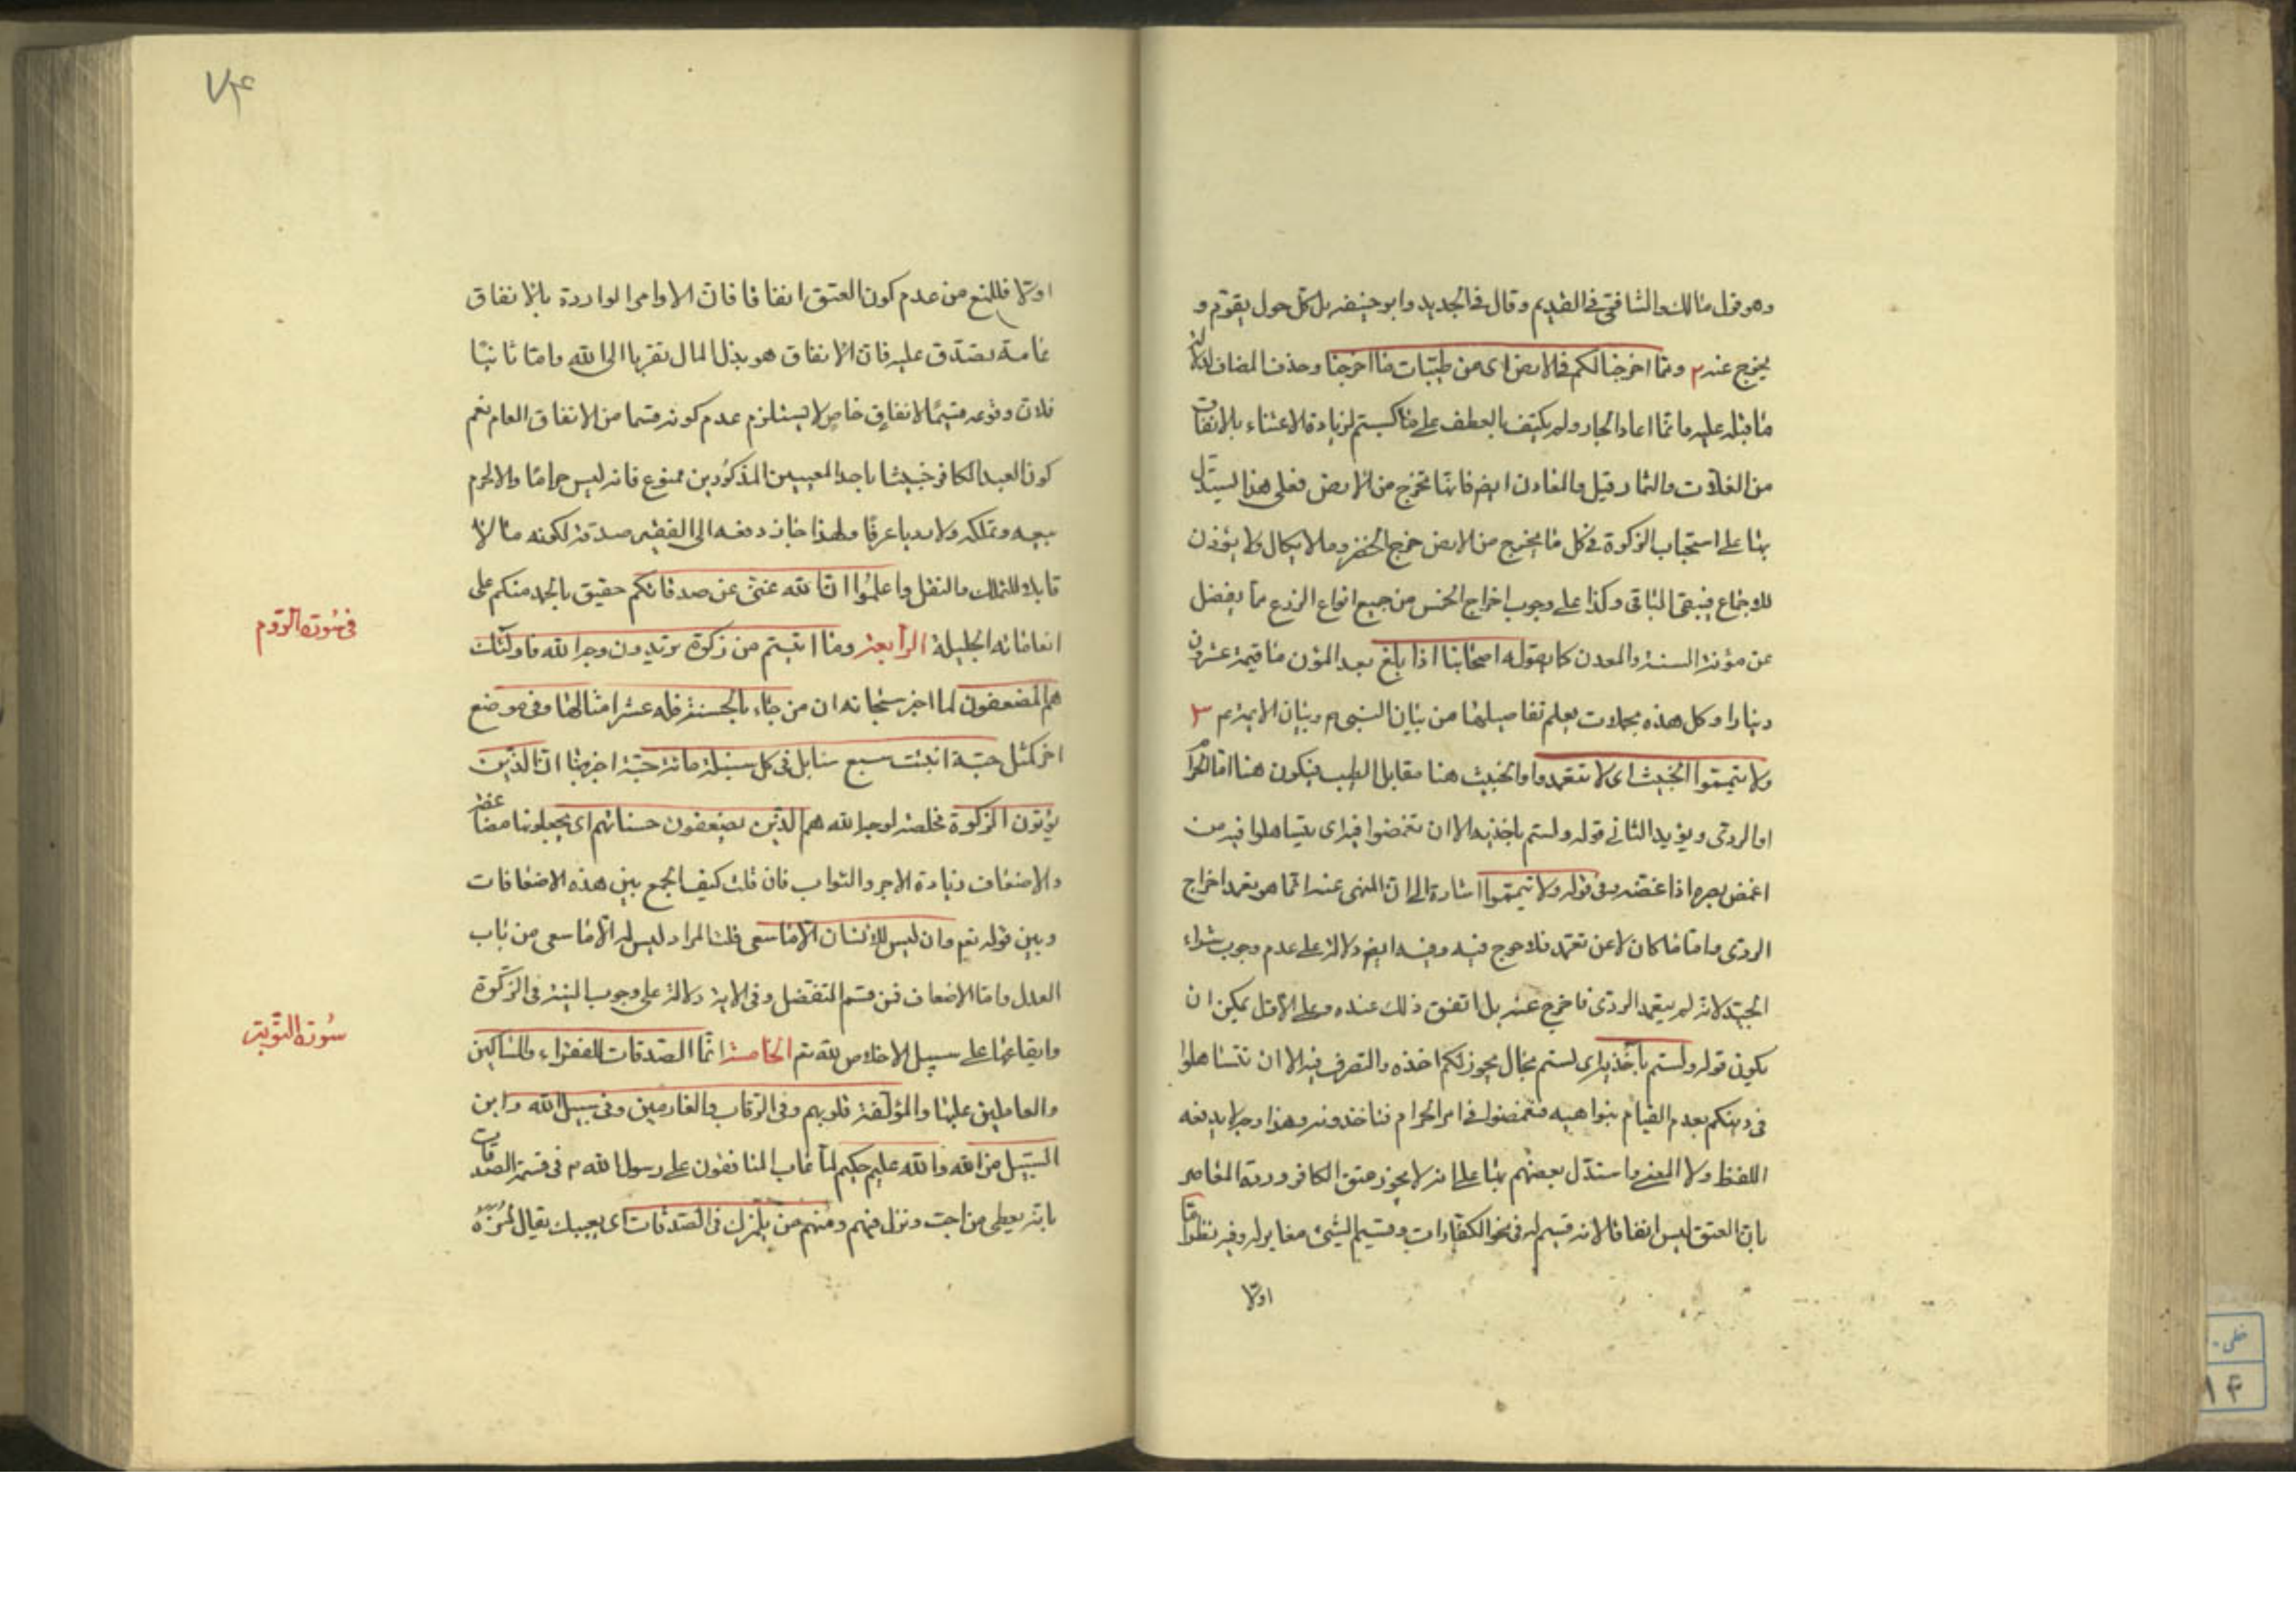 وهو قول مالك والشافعى فى القديم وقال فى الجديد وابو حنيفه بل كل حول يقوّم و
يخرج عنه ٢ وممّا اخرجنا لكم من الارض اى من طيّبات ما اخرجنا وحذف المضاف لدلالة
ما قبله عليه وانّما اعاد الجار ولم يكتف بالعطف على ما كسبتم لزيادة الاعتناء بالانفاق
من الغلات والثمار وقيل والمعادن ايض فانّها تخرج من الارض فعلى هذا يستدل
بها على استحباب الزكوة فى كل ما يخرج من الارض خرج الخضر وما لا يكال ولا يوزن
للاجماع فيبقى الباقى وكذا على وجوب اخراج الخمس من جميع انواع الزرع مما يفضل
عن مؤنة السنة والمعدن كما يقوله اصحابنا اذا بلغ بعد المؤن ما قيمة عشرون
دينارا وكل هذه مجملات يعلم تفاصيلها من بيان النبى م وبيان الائمة ع م ٣
ولا تيمّموا الخبيث اى لا تتعمدوا والخبيث هنا مقابل الطيب فيكون هنا اما الحرام
او الردى ويؤيد الثانى قوله ولستم باخذيه الا ان تغمضوا فيه اى يتساهلوا فيه من
اغمض بصره اذا غضه وفى قوله ولا تيمّموا اشارة الى ان المنهى عنه انّما هو تعمد اخراج
الردى وامّا ما كان لا عن تعمّد فلا حرج فيه وفيه ايض دلالة على عدم وجوب شراء
الجيّد لانه لم يتعمد الردى فاخرج عنه بل اتفق ذلك عنده وعلى الاوّل يمكن ان
يكون قوله ولستم بآخذيه اى لستم بحال يجوز لكم اخذه والتصرف فيه الا ان تتساهلوا
فى دينكم بعدم القيام بنواهيه فتغمضوا فى امر الحرام فتاخذونه وهذا وجه لا يدفعه
اللفظ ولا المعنى واستدّل بعضهم بها على انه لا يجوز عتق الكافر وردّه المعاصر
بانّ العتق ليس انفاقا لانه قسيم له فى نحو الكفّارات وقسيم الشئ مغاير له وفيه نظر امّا
اولا
٧٤
اولا فللمنع من عدم كون العتق انفاقا فانّ الاوامر الواردة بالانفاق
عامة تصدّق عليه فانّ الانفاق هو بذل المال تقربا الى الله وامّا ثانيا
فلانّ وقوعه قسيمًا لانفاق خاص لا يستلزم عدم كونه قسما من الانفاق العام نعم
كون العبد الكافر خبيثا باحد المعنيين المذكورين ممنوع فانه ليس حراما والا لحرم
بيعه وتملكه ولا رديا عرفًا ولهذا جاز دفعه الى الفقير صدقة لكونه مالا
قابلا للتملك والنقل واعلموا انّ الله غنىّ عن صدقاتكم حقيق بالحمد منكم على
انعاماته الجليلة الرّابعة وما اتيتم من زكوة تريدون وجه الله فاولئك
هم المضعفون لما اخبر سبحانه ان من جاء بالحسنة فله عشر امثالها وفى موضع
اخر كمثل حبّة انبتت سبع سنابل فى كل سنبلة مائة حبّة اخبر هنا انّ الذين
يؤتون الزكوة مخلصة لوجه الله هم الذين يضعفون حسناتهم اى يجعلونها مضاعفة
والاضعاف زيادة الاجر والثواب فان قلت كيف الجمع بين هذه الاضعافات
وبين قوله تعم وان ليس للانسان الّا ما سعى قلت المراد ليس له الّا ما سعى من باب
العدل وامّا الاضعاف فمن قسم التفضّل وفى الاية دلالة على وجوب النية فى الزكوة
وايقاعها على سبيل الاخلاص لله تع الخامسة انّما الصّدقات للفقراء والمساكين
والعاملين عليها والمؤلّفة قلوبهم وفى الرّقاب والغارمين وفى سبيل الله وابن
السّبيل فريضة من الله والله عليم حكيم لما عاب المنافقون على رسول الله م فى قسمة الصّدقات
بانّه يعطى من احب ونزل فيهم ومنهم من يلمزك فى الصّدقات اى يعيبك يقال لمزه
فى سُورة الرّوم
سُورة التّوبة